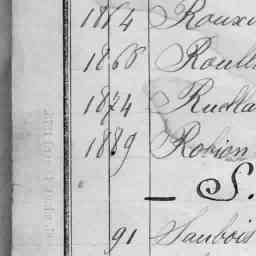 1864 Roux
1868 Roull
1874 Ruella
1889 Robion
— S.
91 Saubois